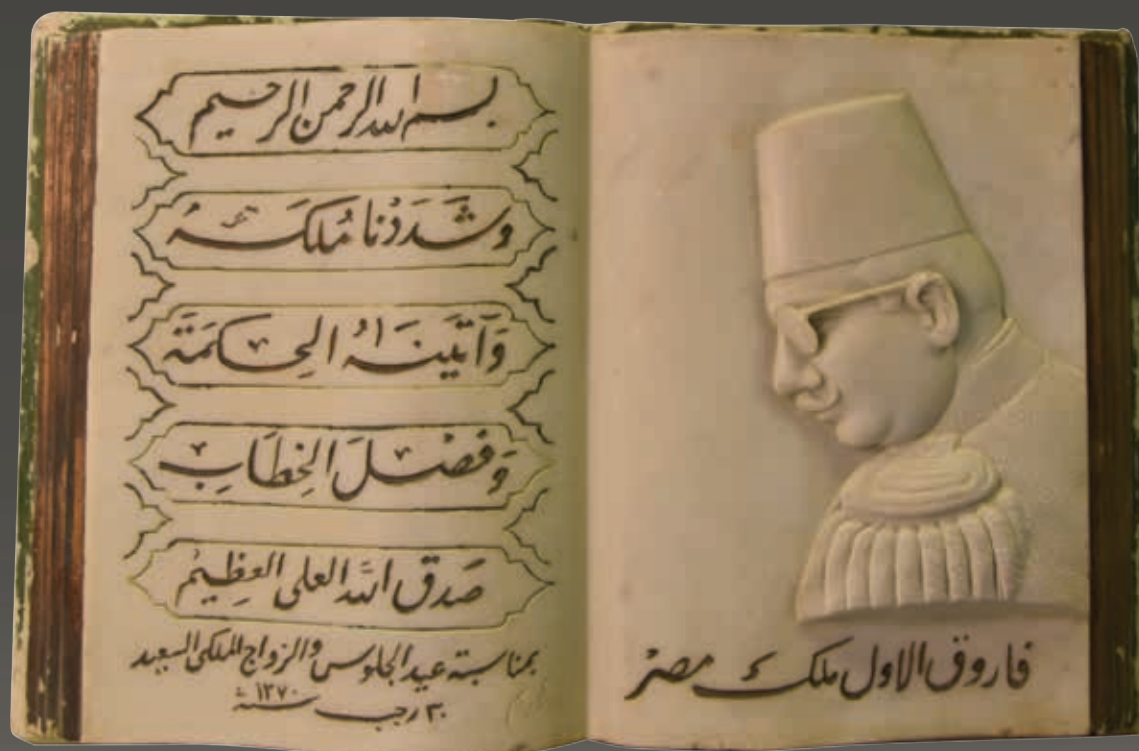 فاروق الاول ملك مصر
بسم الله الرحمن الرحيم
وشَدَدْنا مُلكَهُ
وَآتَينَٰهُ الحِكمَةَ
وَفَصْلَ الخِطَابِ
صَدق الله العلى العظِيم
بمناسبة عيد الجلوس والزواج الملكى السعيد
٣٠ رجب سنة ١٣٧٠